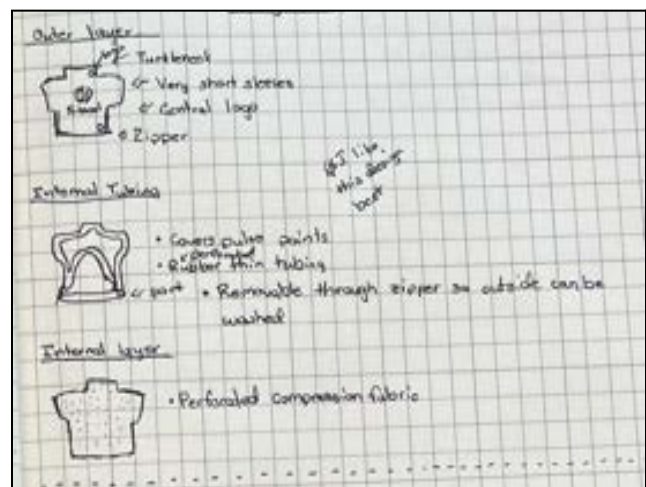 Outer layer
Turtleneck
Very short sleeves
Central logo
Zipper
I like
this design
best
Internal Tubing
• Covers pulse points
perforated
• Rubber thin tubing
port • Removable through zipper so outside can be
washed
Internal layer
• Perforated compression fabric